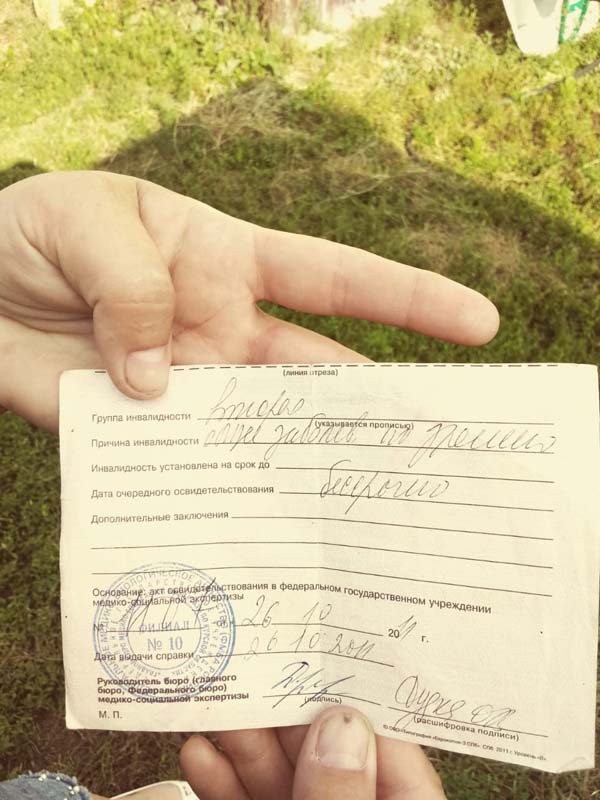 (линия отреза)
Группа инвалидности Вторая
(указывается прописью)
Причина инвалидности общее заболев. по зрению
Инвалидность установлена на срок до
Дата очередного освидетельствования бессрочно
Дополнительные заключения
Основание: акт освидетельствования в федеральном государственном учреждении
медико-социальной экспертизы
№ от 26 10 2011 г.
ФИЛИАЛ
№ 10
Дата выдачи справки 26 10 2011
Руководитель бюро (главного
бюро, Федерального бюро)
медико-социальной экспертизы
(подпись)
(расшифровка подписи)
М. П.